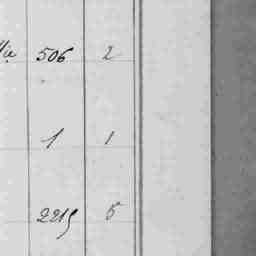 506 2
1 1
2215 5